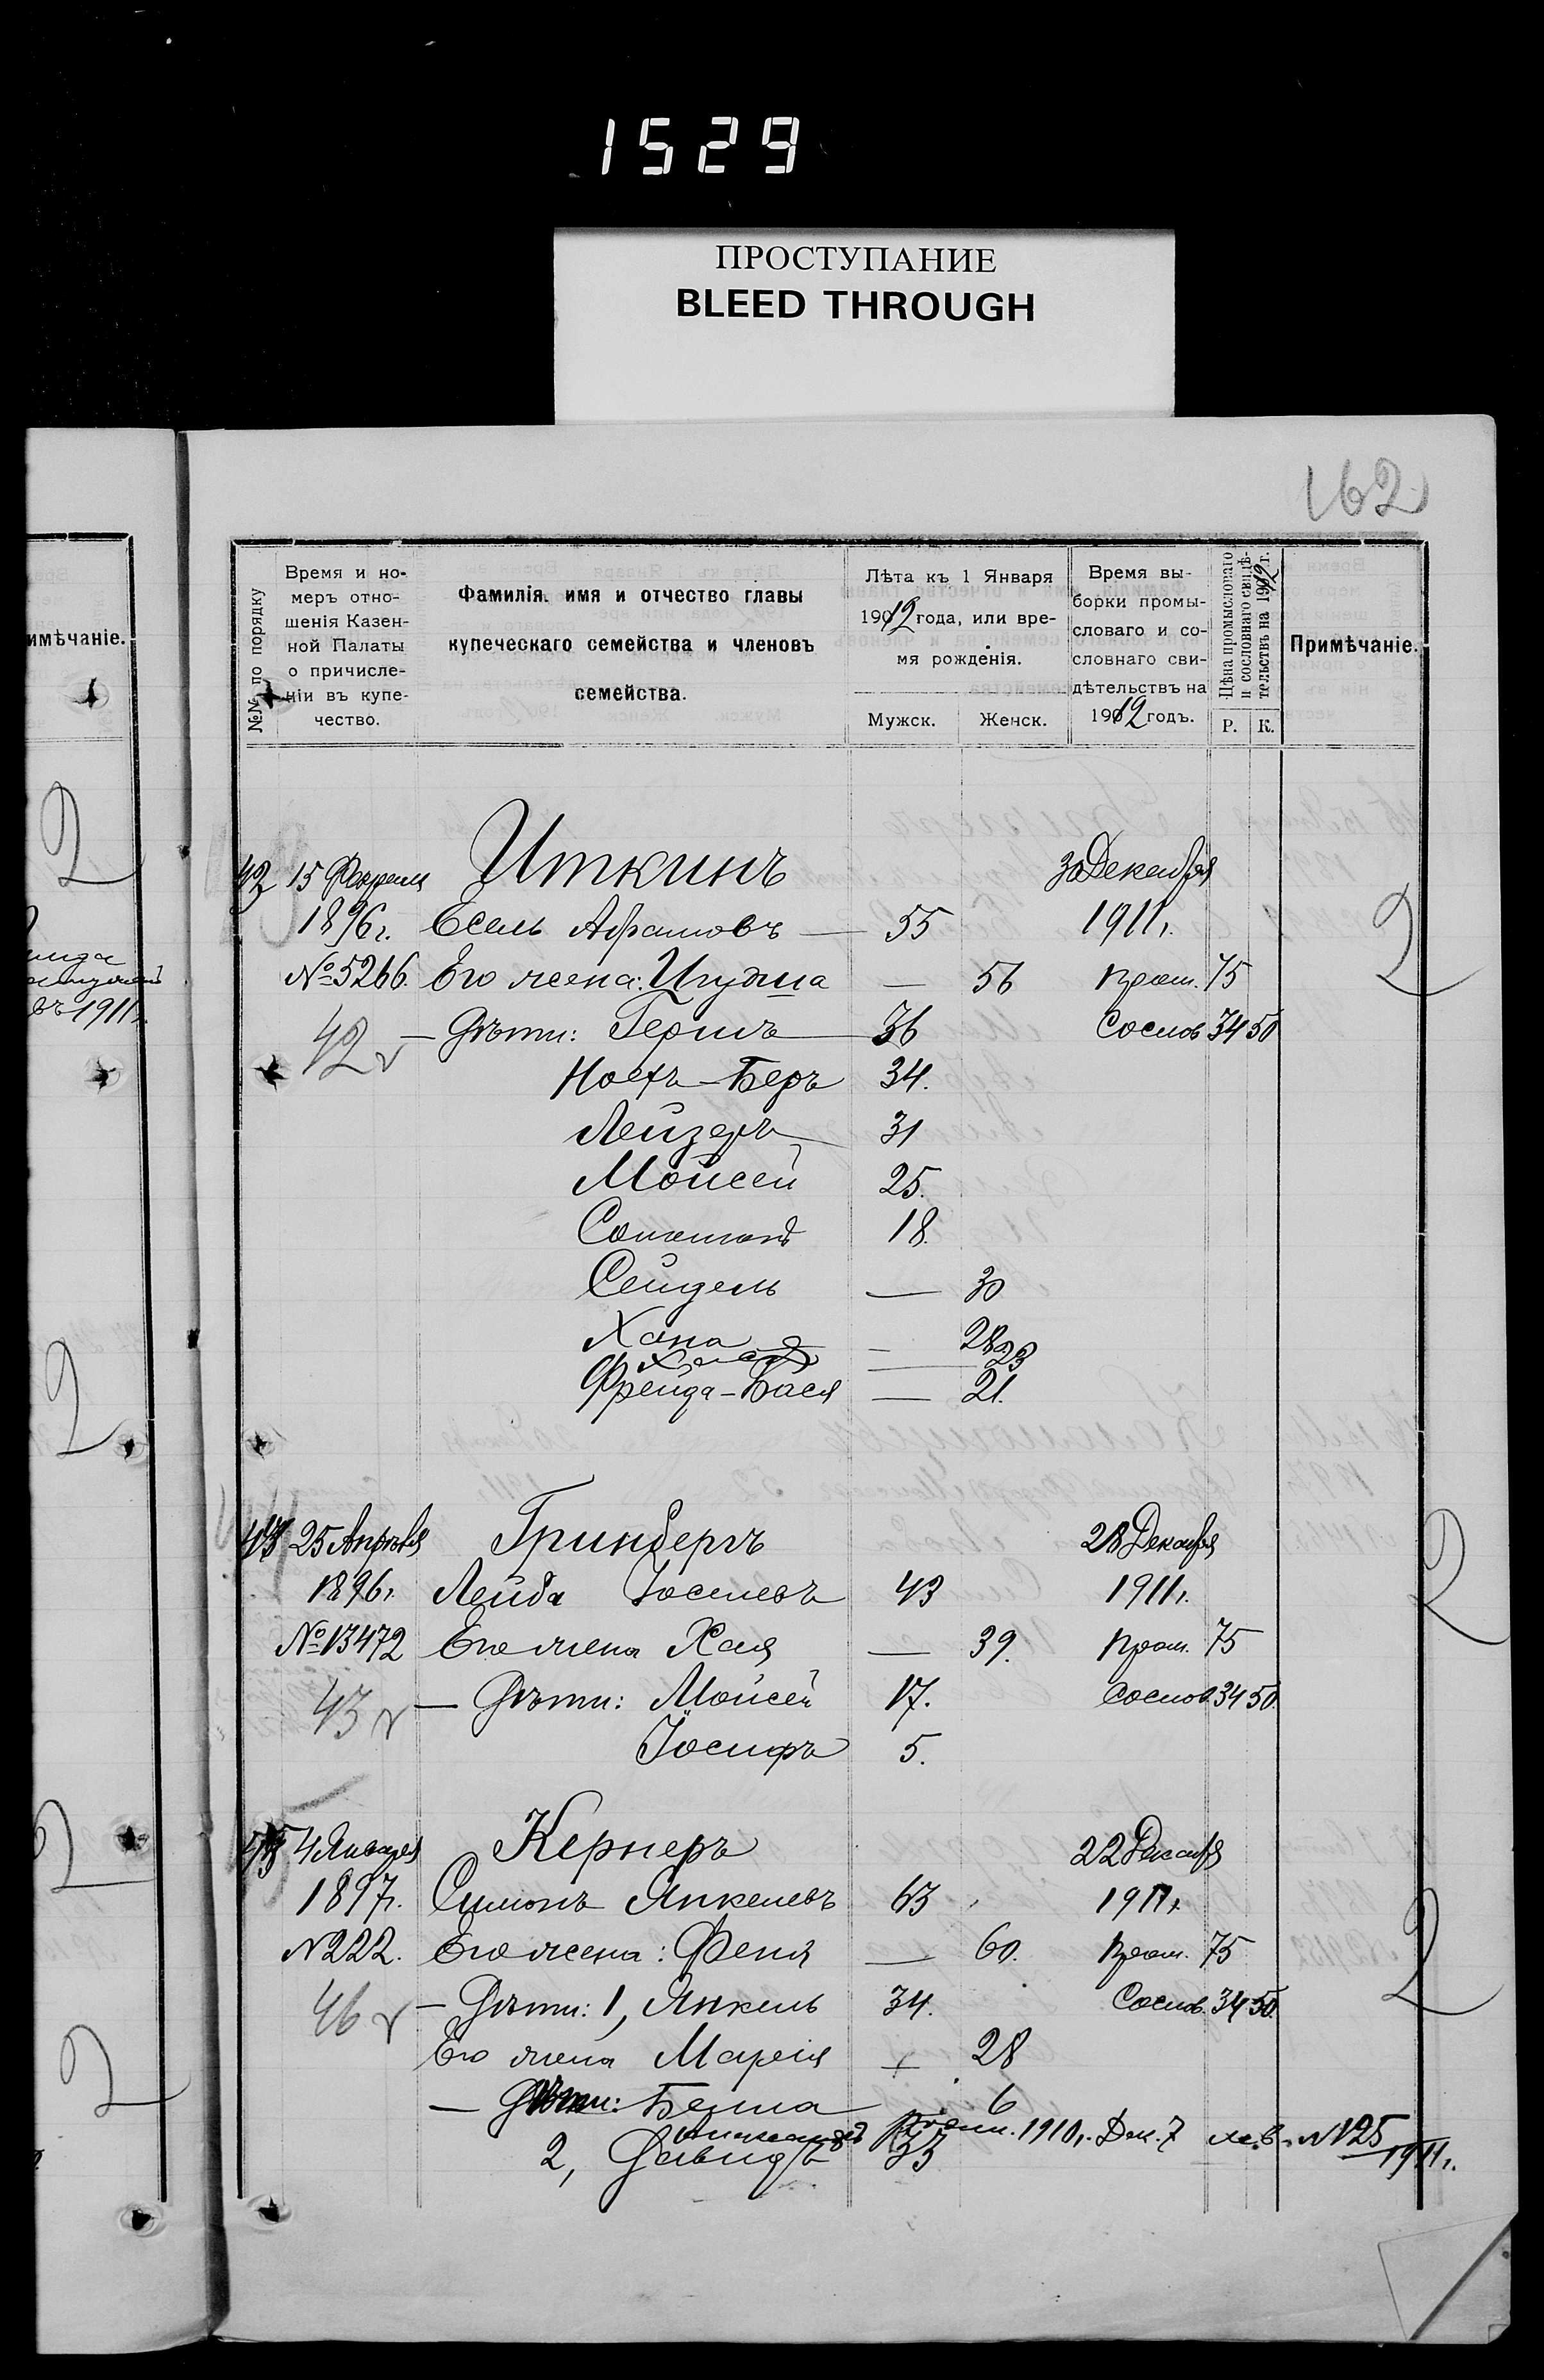 1529
ПРОСТУПАНИЕ
BLEED THROUGH
162
имѣчаніе.
въ 1911 г.
2
2
2
2
№№ по порядку
Время и но-
меръ отно-
шенія Казен-
ной Палаты
о причисле-
ніи въ купе-
чество.
Фамилія, имя и отчество главы
купеческаго семейства и членовъ
семейства.
Лѣта къ 1 Января
1912 года, или вре-
мя рожденія.
Мужск. Женск.
Время вы-
борки промы-
словаго и со-
словнаго сви-
дѣтельствъ на
1912 годъ.
Цѣна промысловаго
и сословнаго свидѣ-
тельствъ на 1912 г.
Р. К.
Примѣчаніе.
42 15 Февраля Иткинъ 30 Декабря
1896 г. Есель Абрамовъ — 55 1911 г. 2
№ 5266. Его жена: — 56 пром. 75
42 — Дѣти: Гершъ 36 Сослов 34 50
Ноехъ-Беръ 34.
Лейзеръ 31
Мойсей 25.
Соломонъ 18.
Сейдель — 30
Хана — 28
23
Фрейда-Бася — 21.
25 Апрѣля Гринбергъ 28 Декабря
1896 г. Лейба Іоселевъ 43 1911 г. 2
№ 13472 Его жена Хая — 39. пром. 75
43 — Дѣти: Мойсей 17. Сослов. 34 50.
Іосифъ 5.
4 Января Кернеръ 22 Декабря
1897 г. Симонъ Янкелевъ 63 1911 г.
№ 222. Его жена: Феня — 60. пром. 75
46 — Дѣти: 1, Янкель 34. Сослов. 34 50. 2
Его жена Марія 28
— Дѣти: Белла 6
Александръ 1910 г. Дек. 7 № 125
1911 г.
2, Давидъ 33